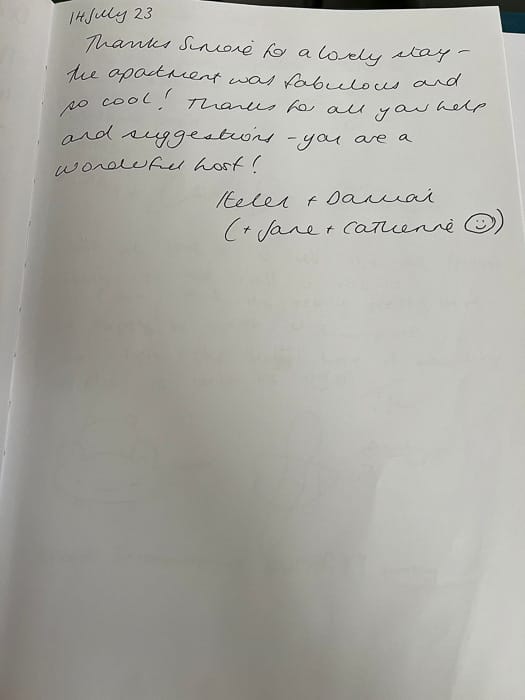 14 July 23
Thanks Simone for a lovely stay -
the apartment was fabulous and
so cool! Thanks for all your help
and suggestions - you are a
wonderful host!
Helen +
(+ Jane + Catherine ☺)